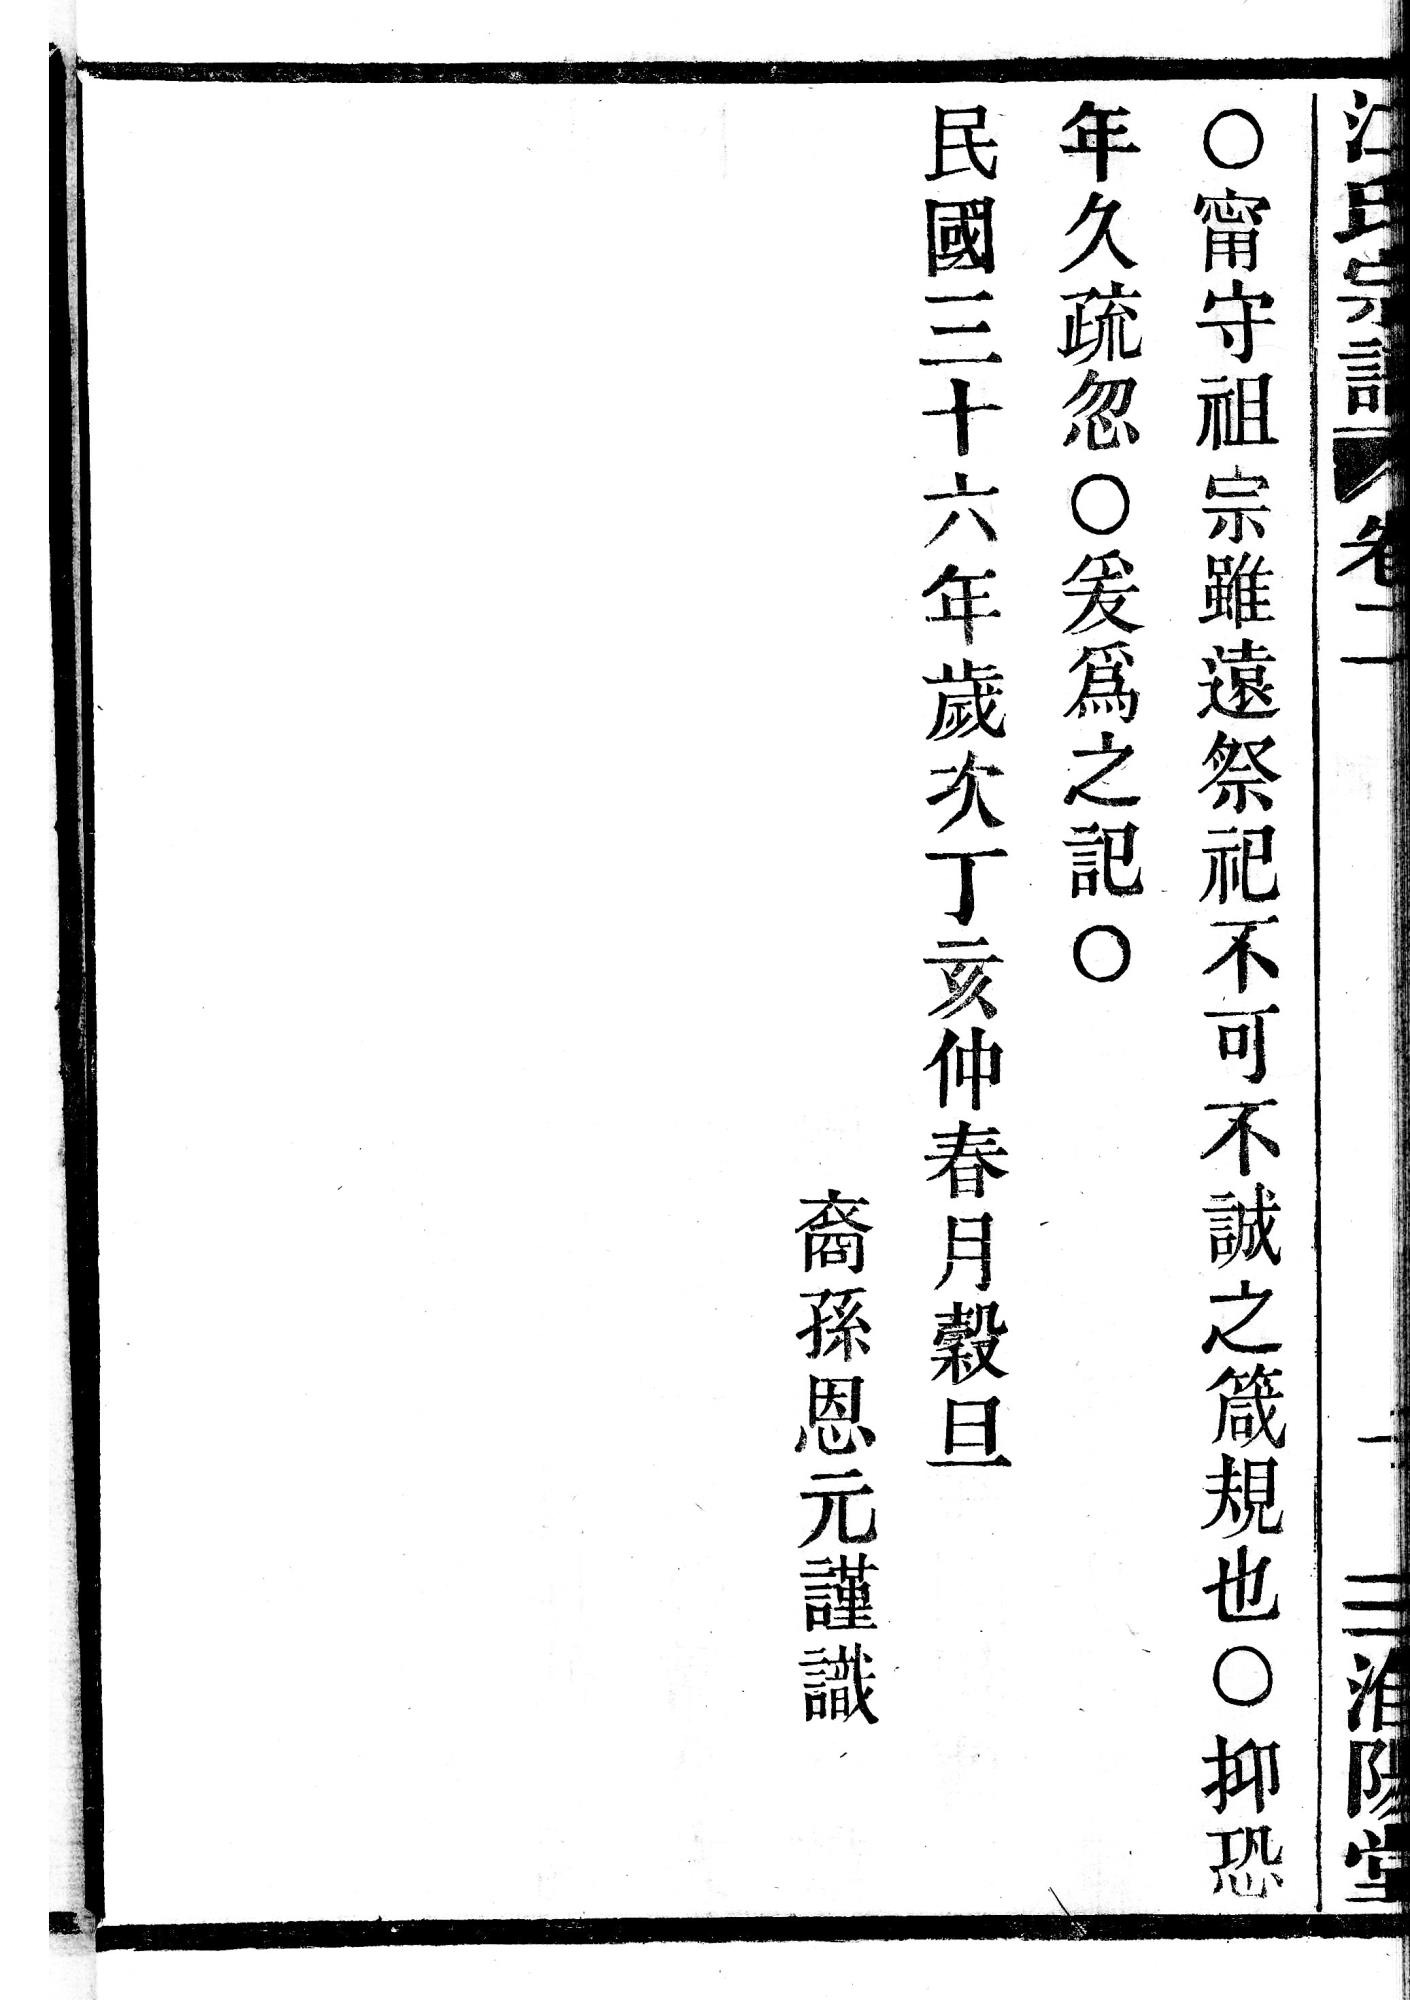 江氏宗譜 卷二 三 淮陽堂
○甯守祖宗雖遠祭祀不可不誠之箴規也○抑恐
年久疏忽○爰爲之記○
民國三十六年歲次丁亥仲春月穀旦
裔孫恩元謹識